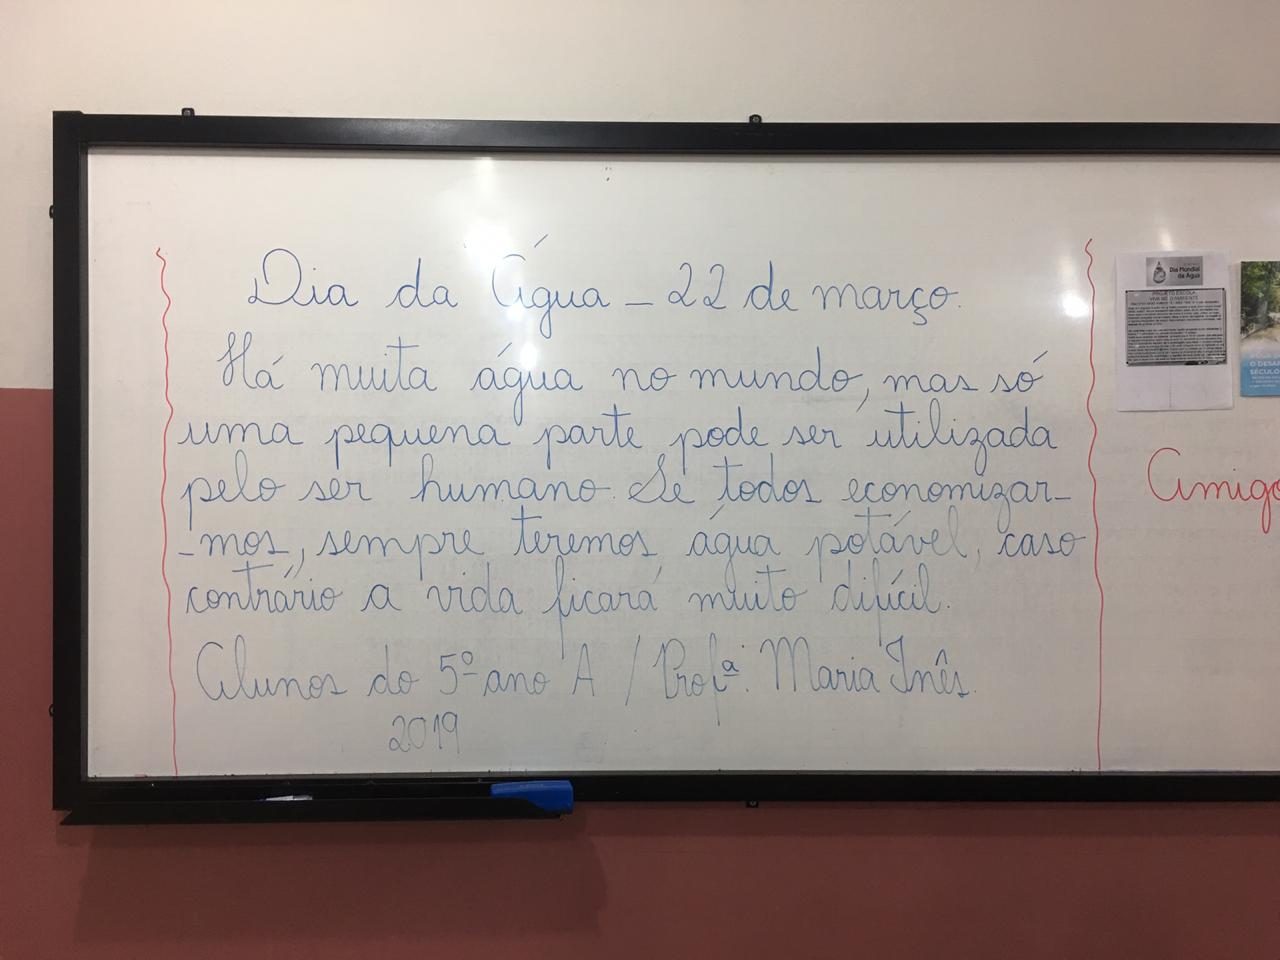 Dia da Água - 22 de março.
Há muita água no mundo, mas só
uma pequena parte pode ser utilizada
pelo ser humano. Se todos economizar-
-mos, sempre teremos água potável, caso
contrário a vida ficará muito difícil.
Alunos do 5º ano A / Profª. Maria Inês.
2019
Dia Mundial
da Água
PROJETO ESCOLA
VIVA MEIO AMBIENTE
O DESA
SÉCULO
Amigo